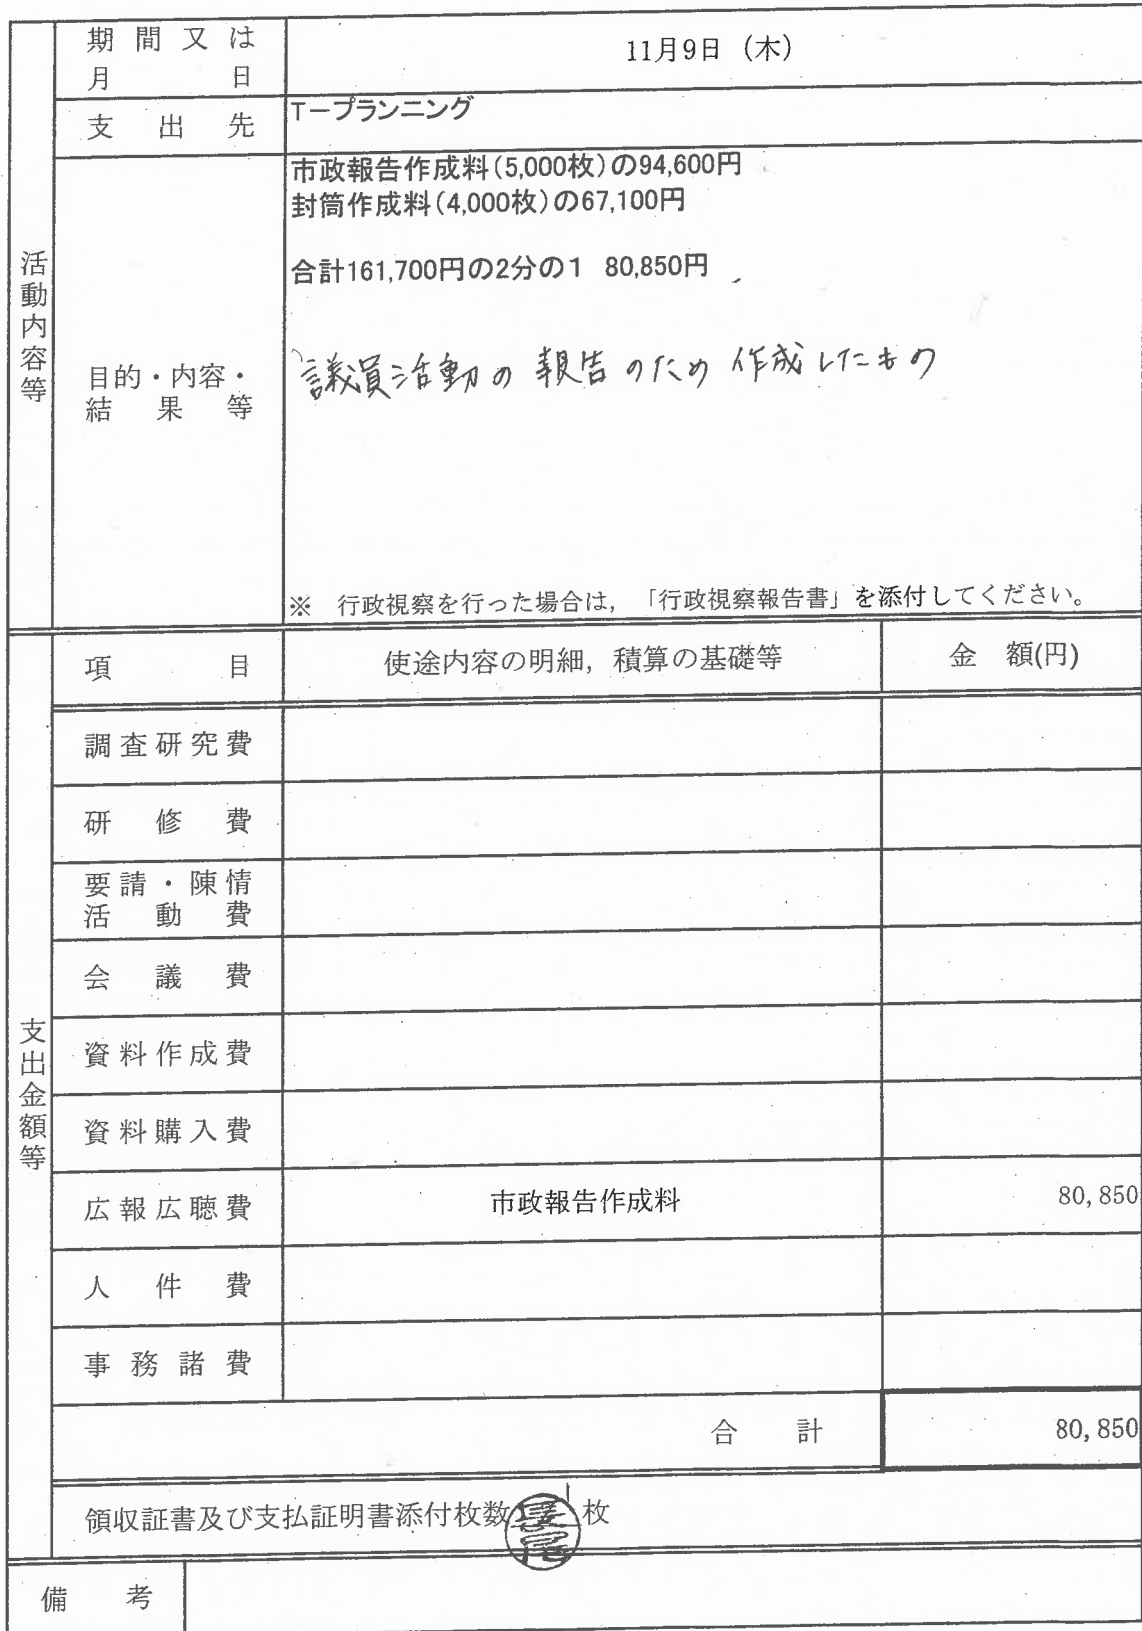 活動内容等
期間又は
月日
11月9日（木）
支出先
T－プランニング
目的・内容・
結果等
市政報告作成料（5,000枚）の94,600円
封筒作成料（4,000枚）の67,100円
合計161,700円の2分の1 80,850円
議員活動の報告のため作成したもの
※ 行政視察を行った場合は，「行政視察報告書」を添付してください。
支出金額等
項目 使途内容の明細，積算の基礎等 金額(円)
調査研究費
研修費
要請・陳情
活動費
会議費
資料作成費
資料購入費
広報広聴費 市政報告作成料 80,850
人件費
事務諸費
合計 80,850
領収証書及び支払証明書添付枚数 1 枚
備考